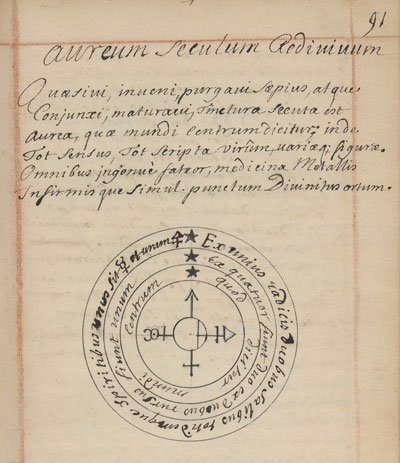 91
Aureum Seculum Redivivum
Quæsivi, inveni, purgavi sæpius, atque
Conjunxi, maturavi, tinctura secuta est
Aurea, quæ mundi Centrum dicitur; inde
Tot sensus, tot scripta virûm, variæq; figuræ.
Omnibus ingenuè fateor, medicina Metallis
Infirmisque simul: punctum Divinitus ortum.
Ex unius radicis duobus salibus totidemque spiritibus
Ex quatuor fiunt duo ex duobus rursus fiunt unum
quod dicitur mundi Centrum